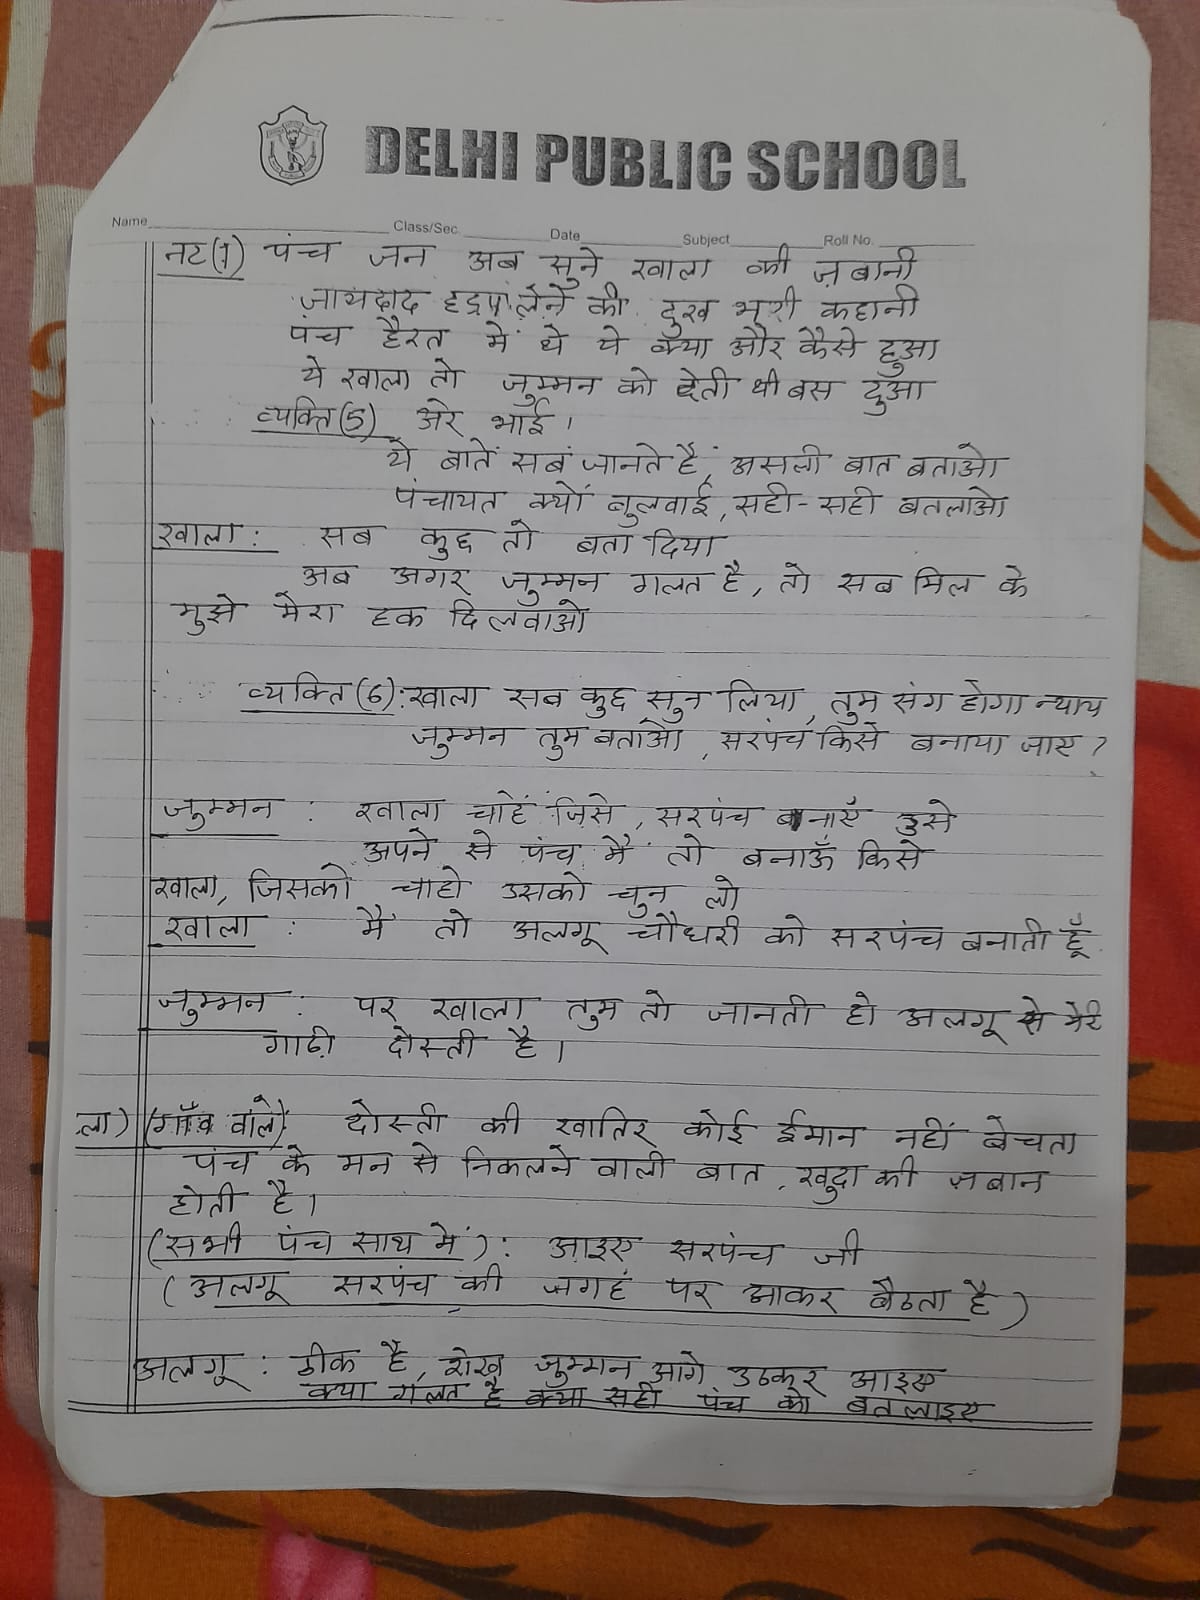 DELHI PUBLIC SCHOOL
Name Class/Sec. Date Subject Roll No.
नट(1) पंच जन अब सुने खाला की ज़बानी
ज़ायदाद हड़प लेने की दुख भरी कहानी
पंच हैरत में थे ये क्या और कैसे हुआ
ये खाला तो जुम्मन को देती थी बस दुआ
व्यक्ति(5) अरे भाई।
ये बातें सब जानते हैं, असली बात बताओ
पंचायत क्यों बुलवाई, सही-सही बतलाओ
खाला: सब कुछ तो बता दिया
अब अगर जुम्मन गलत है, तो सब मिल के
मुझे मेरा हक दिलवाओ
व्यक्ति(6): खाला सब कुछ सुन लिया, तुम संग होगा न्याय
जुम्मन तुम बताओ, सरपंच किसे बनाया जाए?
जुम्मन: खाला चाहें जिसे, सरपंच बनाएँ उसे
अपने से पंच मैं तो बनाऊँ किसे
खाला, जिसको चाहो उसको चुन लो
खाला: मैं तो अलगू चौधरी को सरपंच बनाती हूँ
जुम्मन: पर खाला तुम तो जानती हो अलगू से मेरी
गाढ़ी दोस्ती है।
ला) (गाँव वाले) दोस्ती की खातिर कोई ईमान नहीं बेचता
पंच के मन से निकलने वाली बात, खुदा की ज़बान
होती है।
(सभी पंच साथ में): आइए सरपंच जी
(अलगू सरपंच की जगह पर आकर बैठता है)
अलगू: ठीक है, शेख जुम्मन आगे उठकर आइए
क्या गलत है क्या सही पंच को बतलाइए